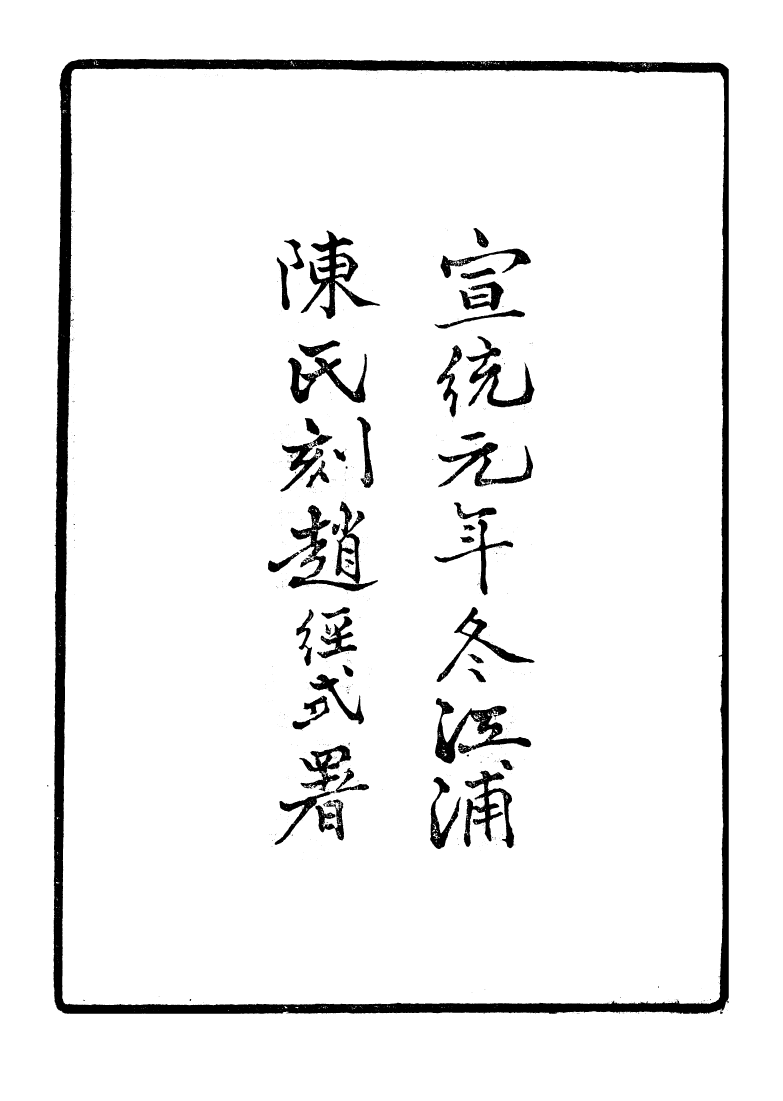 宣統元年冬江浦
陳氏刻趙經式署